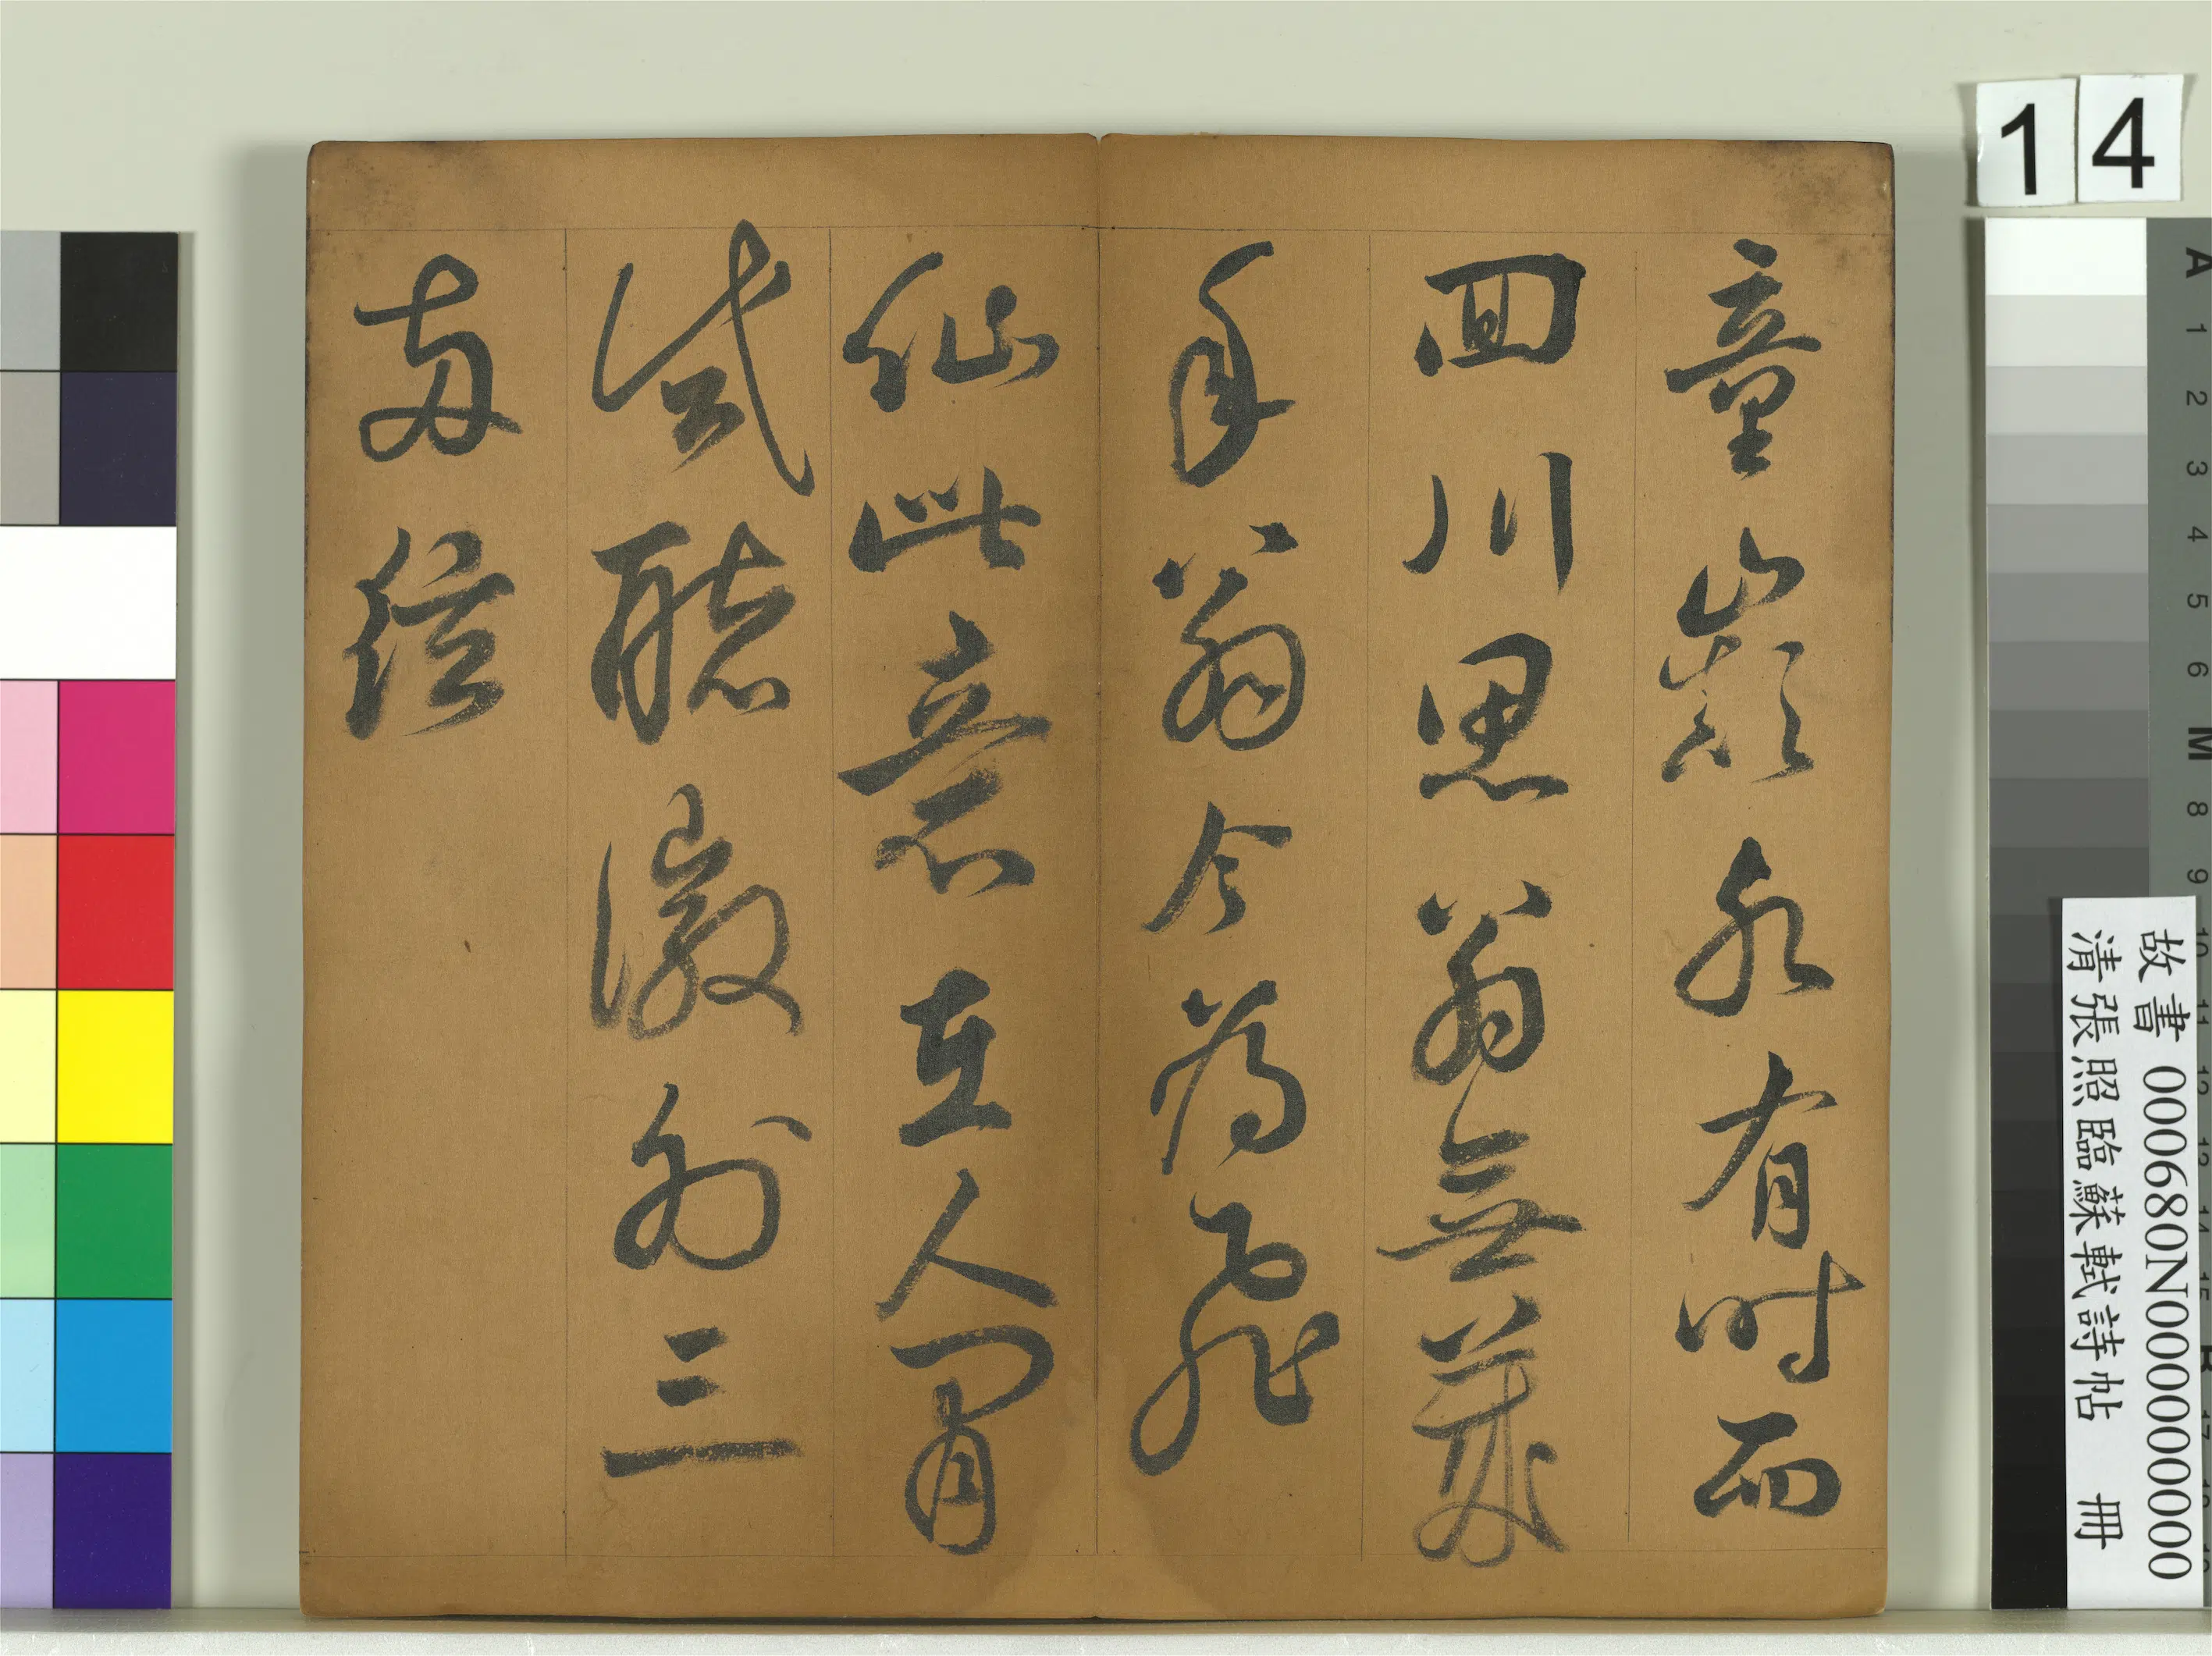 14
童巔水有時而
回川思翁無歲
年翁今為飛
仙此意在人間
試聽徽外三
兩絃
故書 000680N000000000
清張照臨蘇軾詩帖 冊
A 1 2 3 4 5 6 M 8 9